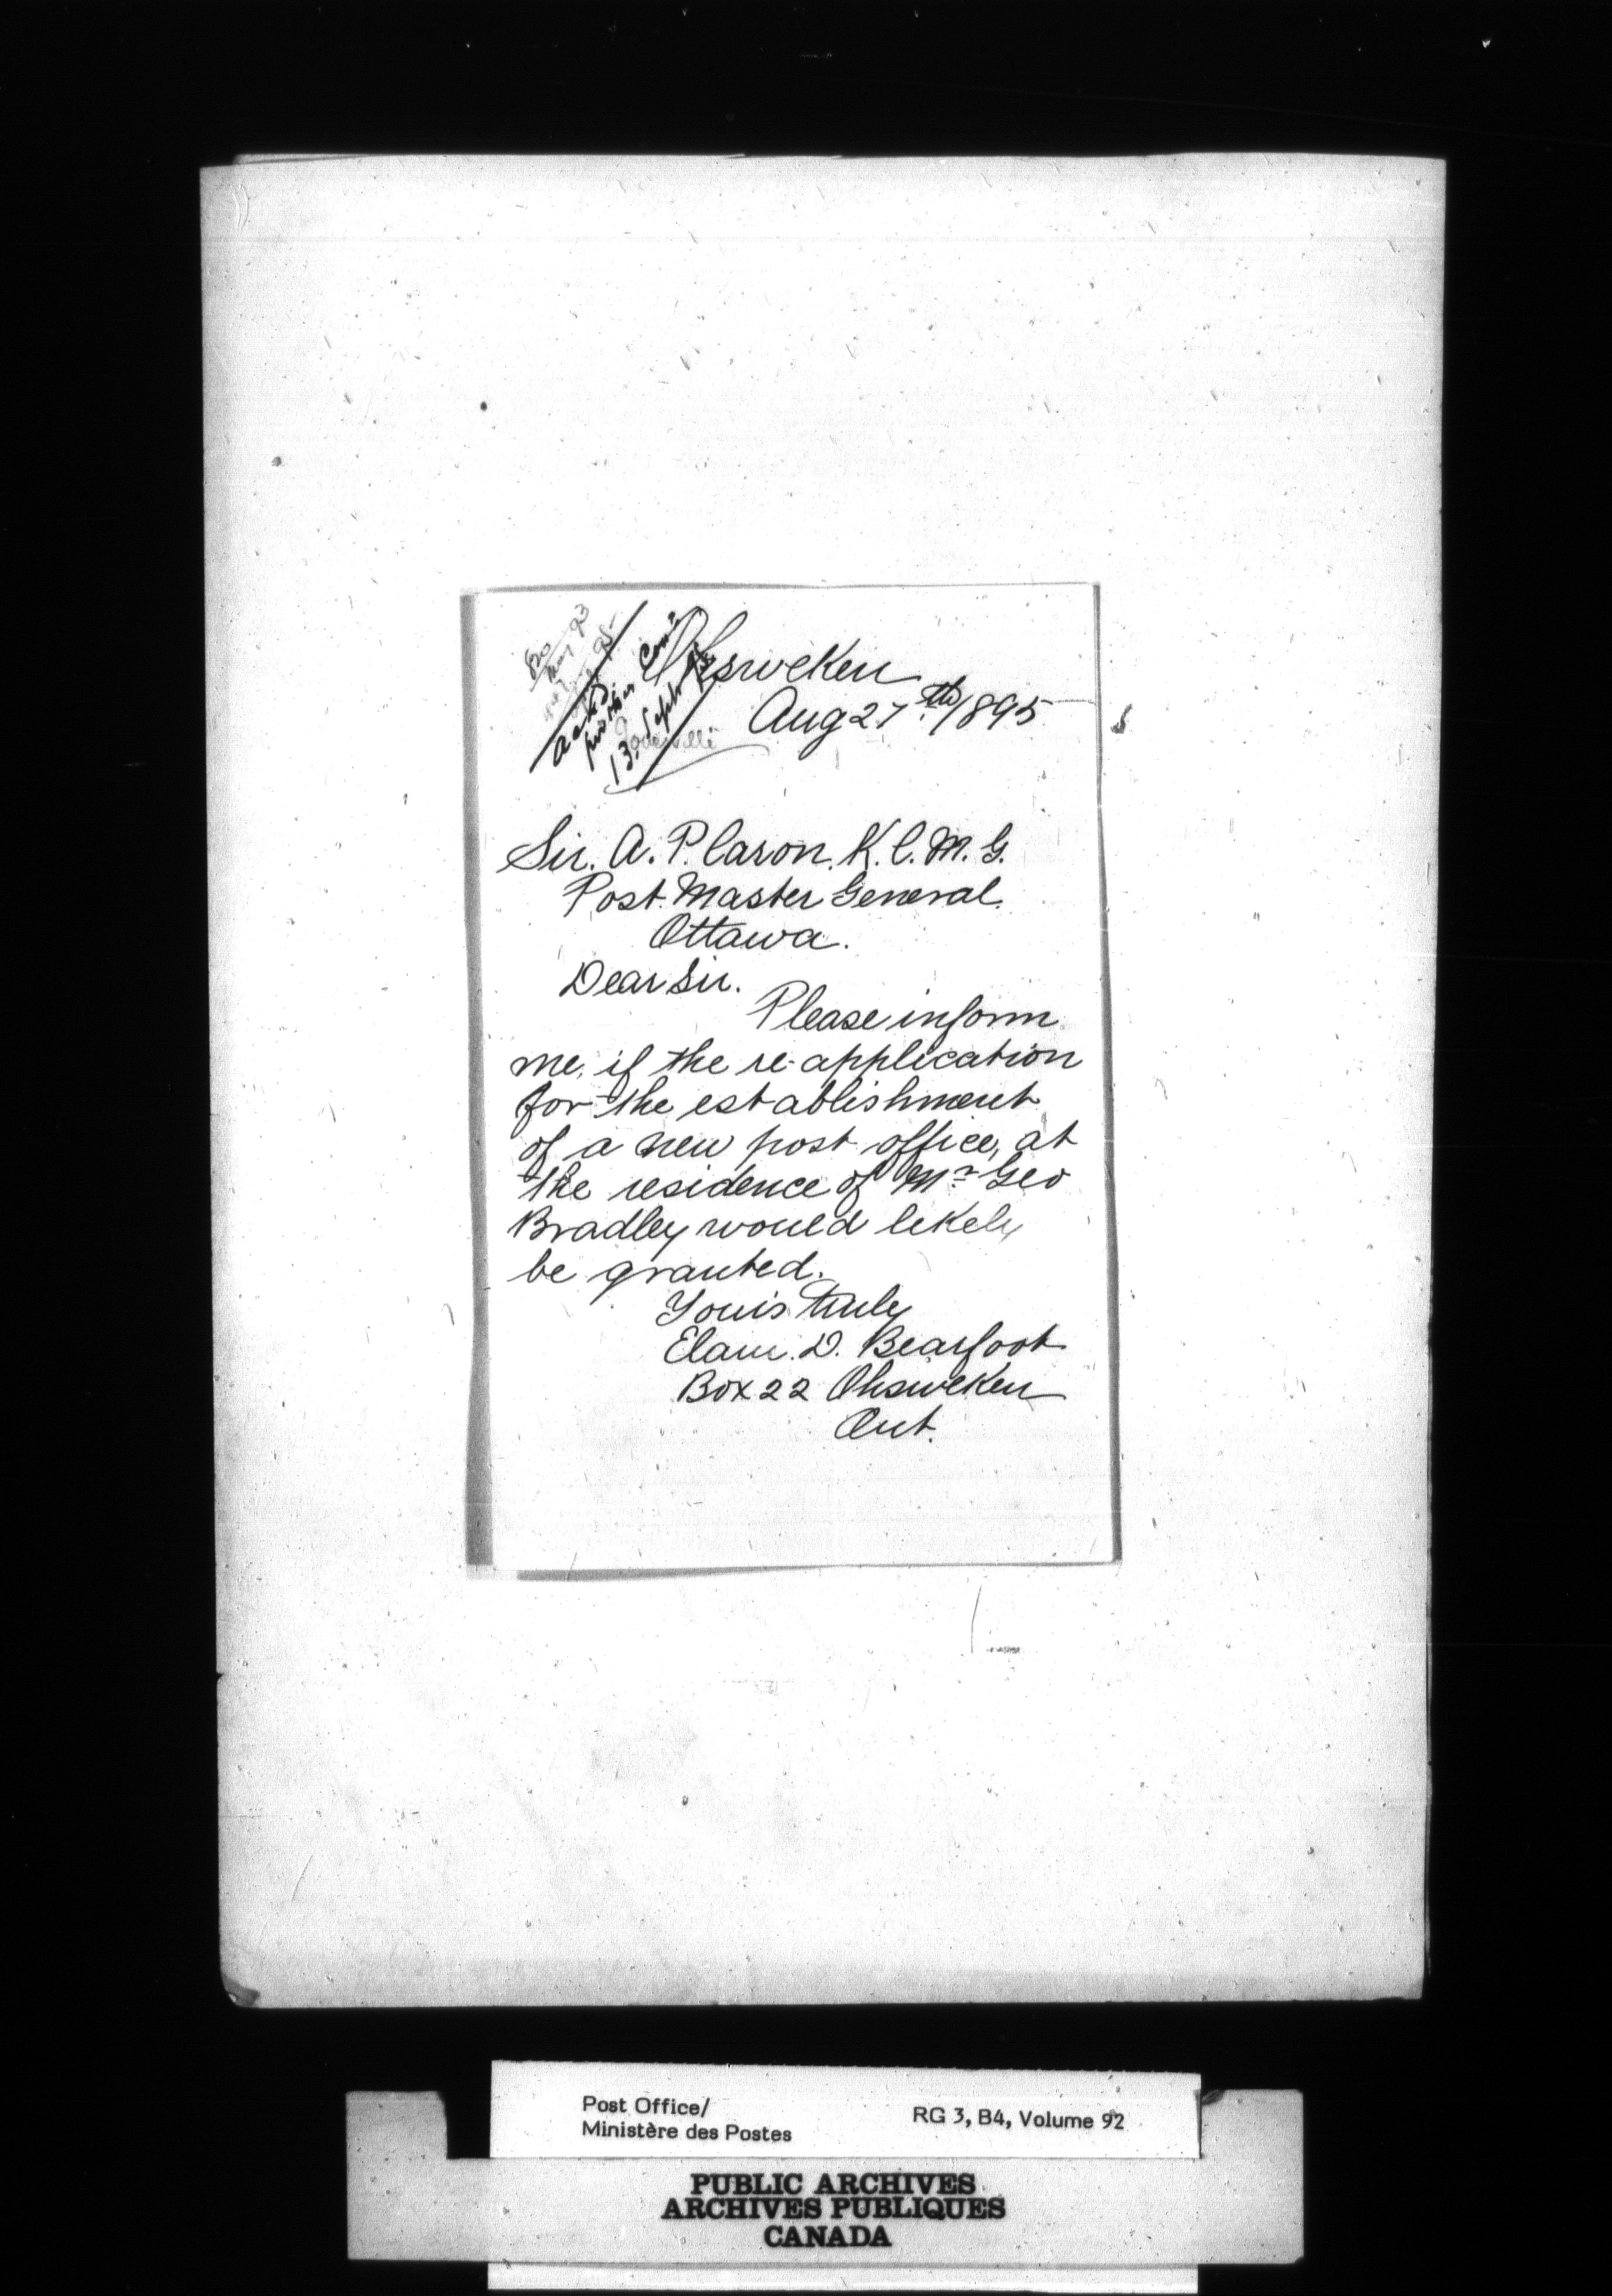 Ohsweken
Aug 27th/1895
Ackd.
13. Sept
Sir. A. P. Caron. K. C. M. G.
Post. Master General.
Ottawa.
Dear Sir.
Please inform
me, if the re-application
for the establishment
of a new post office, at
the residence of Mr Geo
Bradley would likely
be granted.
Yours truly
Elam. D. Bearfoot
Box 22 Ohsweken
Ont.
Post Office/
Ministère des Postes
RG 3, B4, Volume 92
PUBLIC ARCHIVES
ARCHIVES PUBLIQUES
CANADA